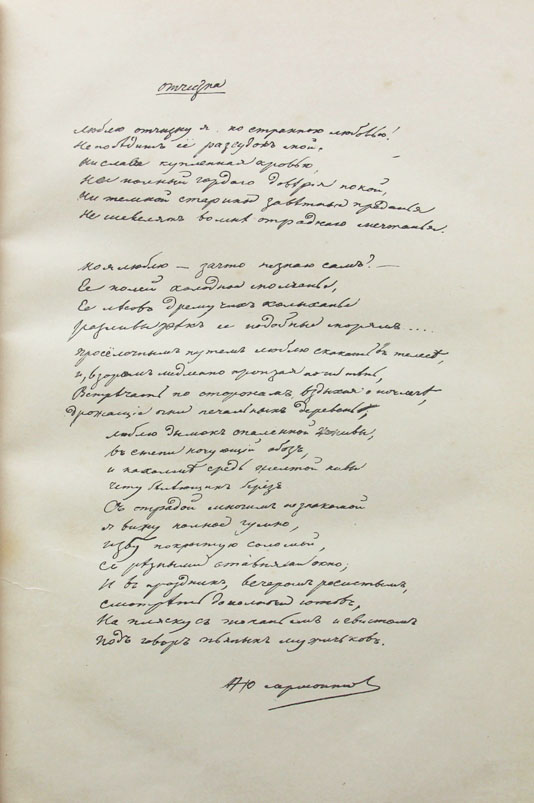 Отчизна
Люблю отчизну я но странною любовью!
Непобѣдитъ её разсудокъ мой,
Ни слава купленная кровью,
Ни полный гордаго довѣрія покой,
Ни темной старины завѣтныя преданья
Не шевелятъ во мнѣ отраднаго мечтанья.
Но я люблю — зачто незнаю самъ? —
Ея полей холодное молчанье,
Ея лѣсовъ дремучихъ колыханье
разливы рѣкъ ея подобные морямъ....
просёлочнымъ путемъ люблю скакать въ телегѣ,
и, взоромъ медленно пронзая ночи тѣнь,
Встрѣчать по сторонамъ, вздыхая о ночлегѣ,
дрожащіе огни печальныхъ деревень,
люблю дымокъ спаленной жнивы,
въ степи ночующій обозъ,
и на холмѣ средь желтой нивы
чету бѣлѣющихъ берёзъ
Съ отрадой многимъ незнакомой
я вижу полное гумно,
избу покрытую соломой,
Съ рѣзными ставнями окно;
И въ праздникъ, вечеромъ росистымъ,
смотрѣть до полночи готовъ,
На пляску съ топаньемъ и свистомъ
подъ говоръ пьяныхъ мужичковъ.
М Ю Лермонтов